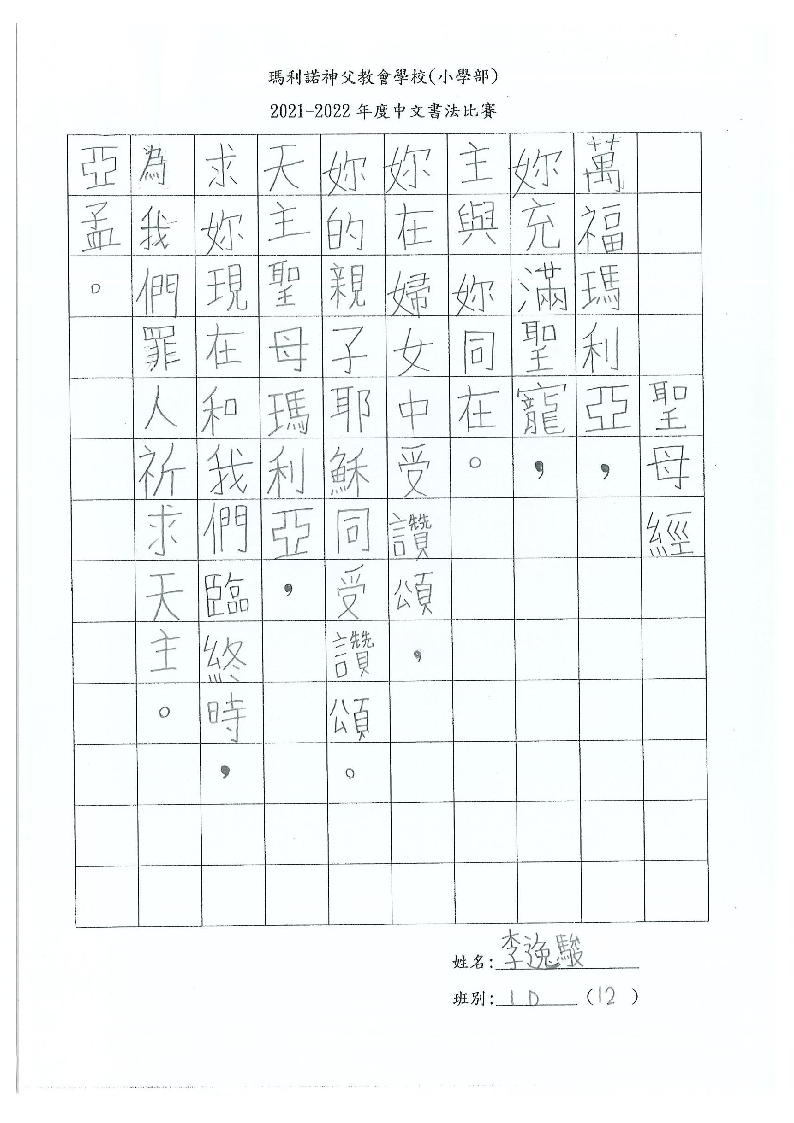 瑪利諾神父教會學校(小學部)
2021-2022 年度中文書法比賽
聖母經
萬福瑪利亞，
妳充滿聖寵，
主與妳同在。
妳在婦女中受讚頌，
妳的親子耶穌同受讚頌。
天主聖母瑪利亞，
求妳現在和我們臨終時，
為我們罪人祈求天主。
亞孟。
姓名:李逸駿
班別:1D (12)